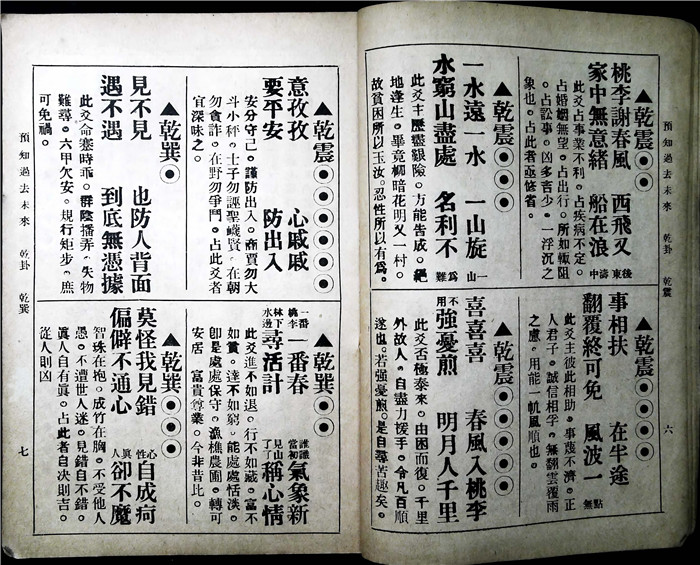 預知過去未來 乾卦 乾震 六
▲乾震⦿⦿
桃李謝春風 西飛又後東
家中無意緒 船在浪濤中
此爻占事業不利。占疾病不定。
占婚姻無望。占出行。所如輒阻
。占訟事。凶多吉少。一浮沉之
象也。占此者亟修省。
▲乾震⦿⦿⦿
一水遠一水 一山旋一山
水窮山盡處 名利不爲難
此爻主歷盡艱險。方能告成。絕
地逢生。畢竟柳暗花明又一村。
故貧困所以玉汝。忍性所以有爲。
▲乾震⦿⦿⦿⦿
事相扶 在半途
翻覆終可免 風波一點無
此爻主彼此相助。事變不濟。正
人君子。誠信相孚。無翻雲覆雨
之慮。用能一帆風順也。
▲乾震⦿⦿⦿⦿⦿
喜喜喜 春風入桃李
不用強憂煎 明月人千里
此爻否極泰來。由困而復。千里
外故人。自盡力援手。令凡百順
遂也。若強憂煎。是自尋苦趣矣。
▲乾震⦿⦿⦿⦿⦿⦿
意孜孜 心戚戚
要平安 防出入
安分守己。謹防出入。商賈勿大
斗小秤。士子勿誣聖衊賢。在朝
勿貪詐。在野勿爭鬥。占此爻者
宜深味之。
▲乾巽⦿
見不見 也防人背面
遇不遇 到底無憑據
此爻命蹇時乖。群陰播弄。失物
難尋。六甲欠安。規行矩步。庶
可免禍。
▲乾巽⦿⦿
一番桃李一番春 誰識當初氣象新
林下水邊尋活計 見山了了稱心情
此爻進不如退。行不如藏。富不
如貧。達不如窮。能處處恬淡。
卽是處處保守。漁樵農圃。轉可
安居。富貴尊榮。今非昔比。
▲乾巽⦿⦿⦿
莫怪我見錯 心性自成疴
偏僻不通心 眞人卻不魔
智珠在抱。成竹在胸。不受他人
愚。不遭世人迷。見錯自不錯。
眞人自有眞。占此者自決則吉。
從人則凶
預知過去未來 乾卦 乾巽 七